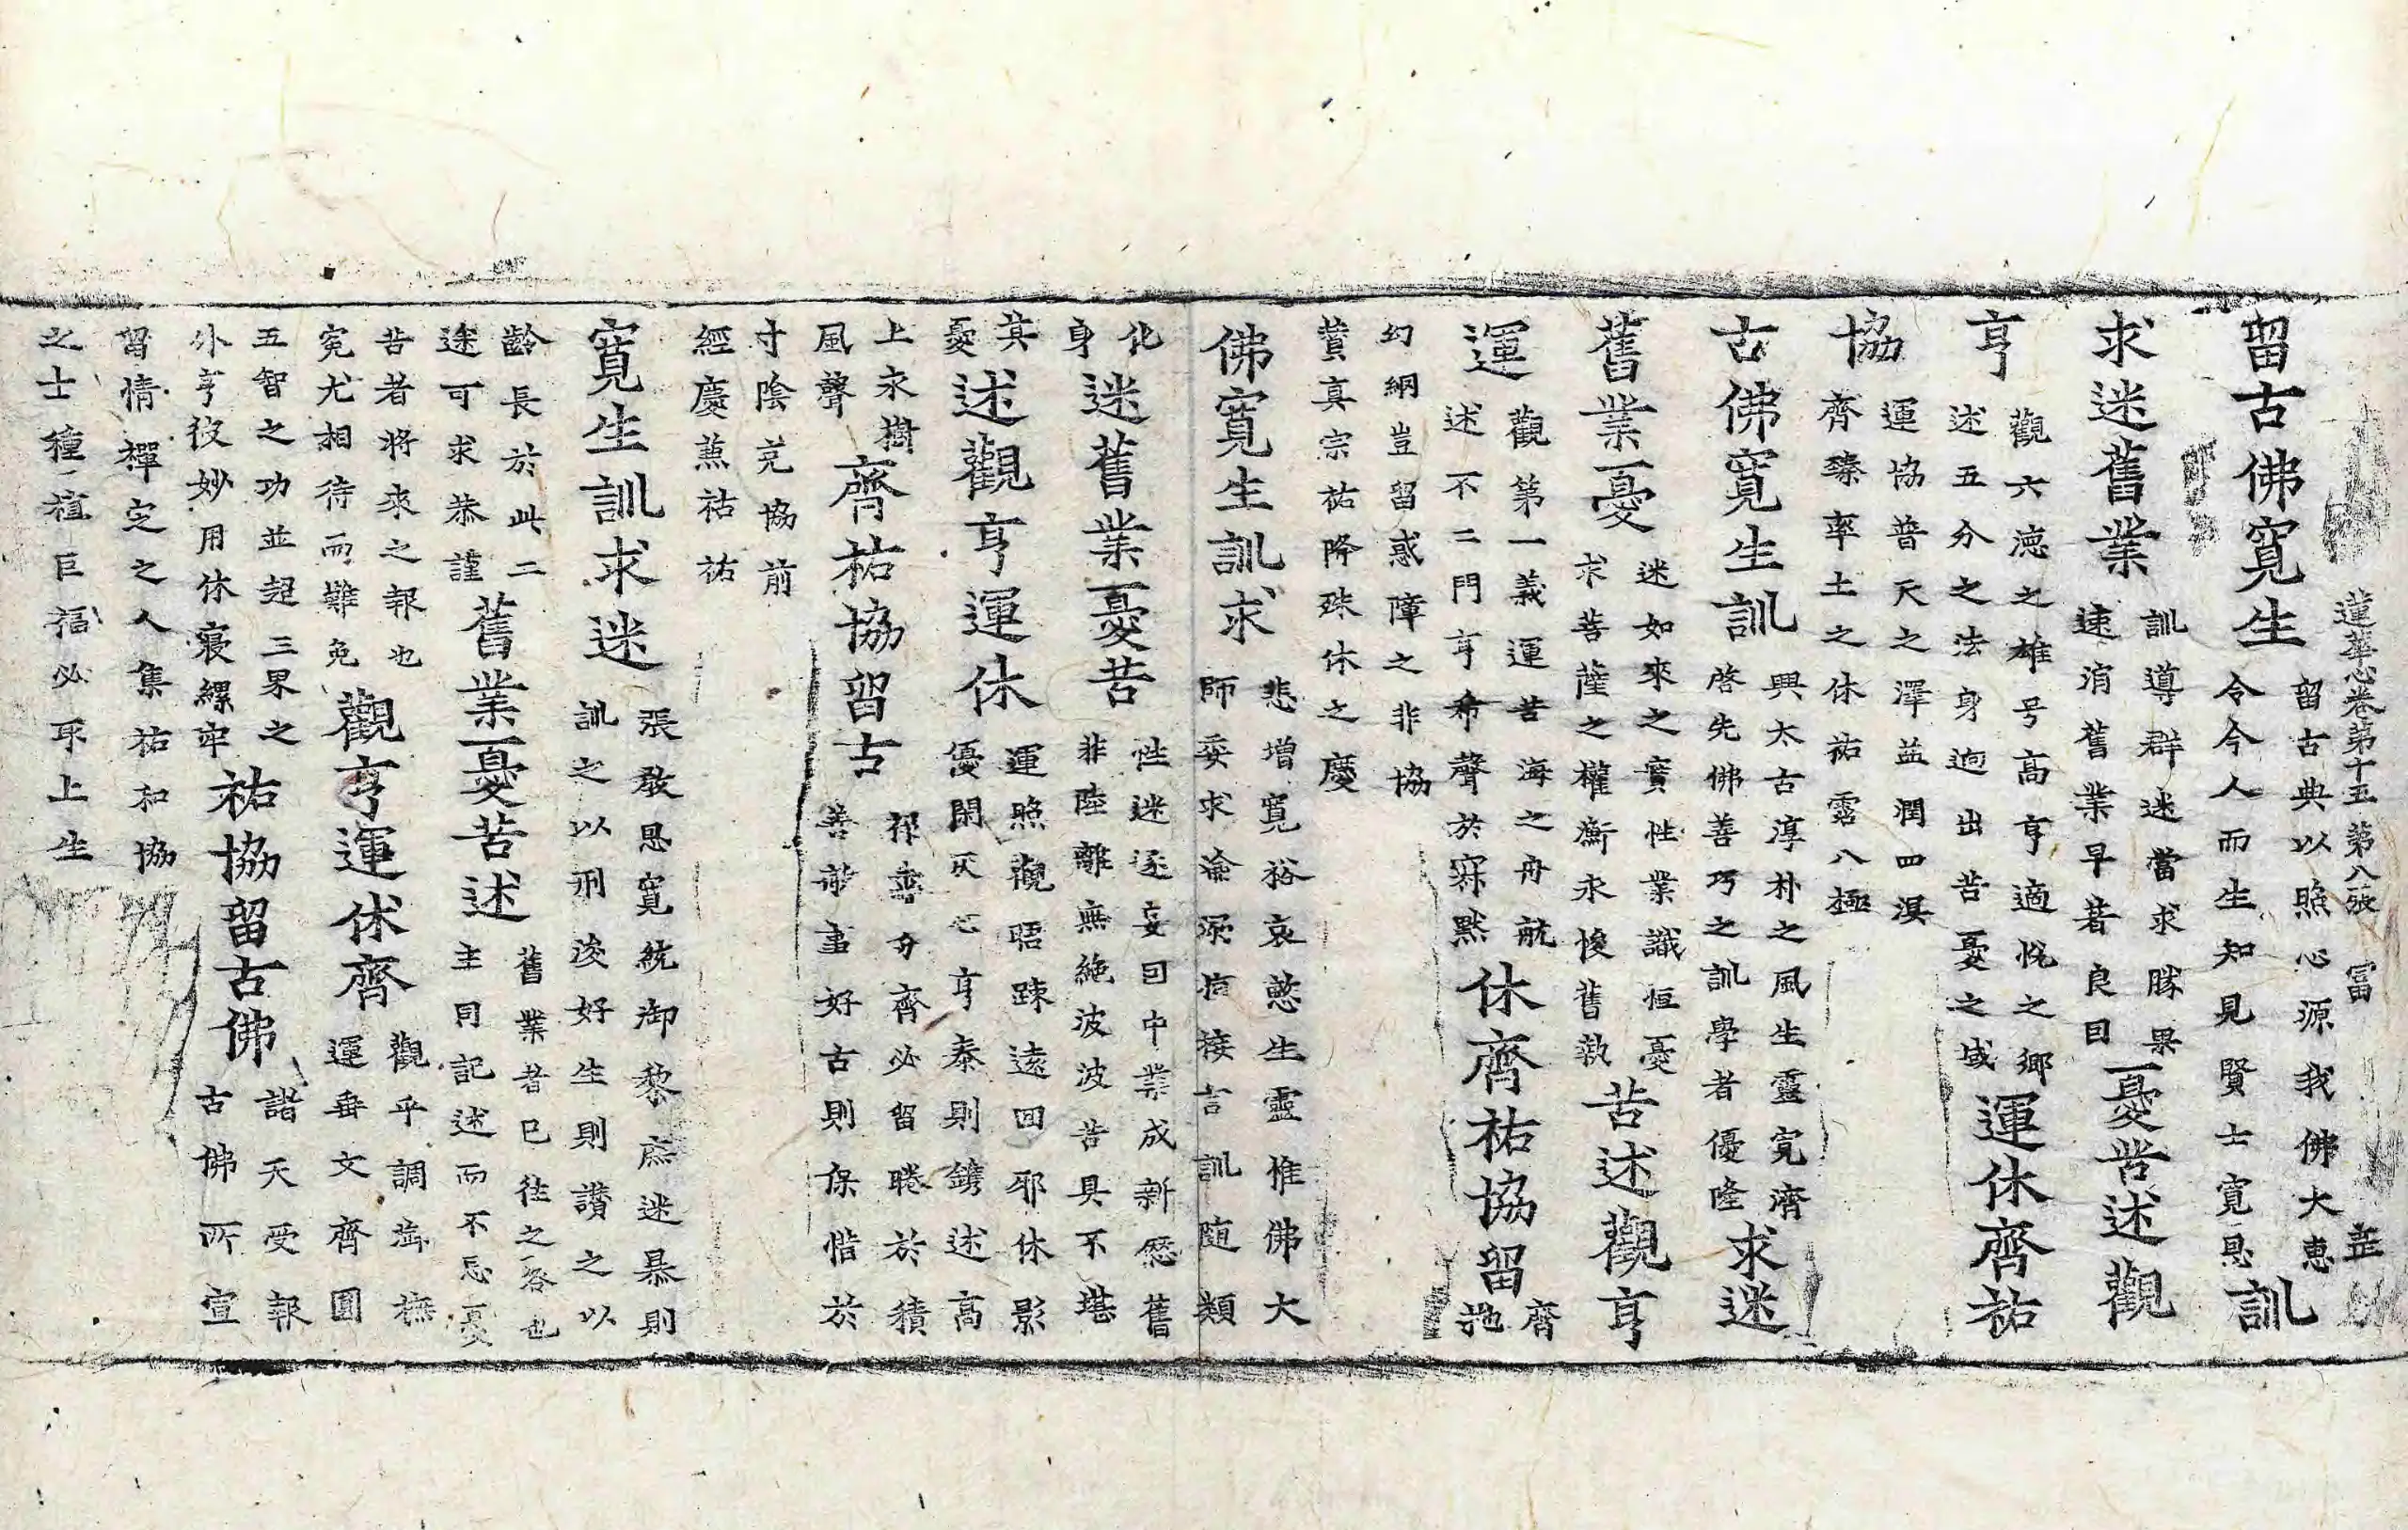 蓮華心卷第十五 第八張 冨
留古佛寬生
留古典以照心源我佛大惠
令今人而生知見賢士寬恩
訓
求迷舊業
訓導群迷當求勝果
速消舊業早著良因
憂苦述觀
亨
觀六德之雄号高亨適悦之鄉
述五分之法身逈出苦憂之域
運休齊祐
協
運協普天之澤益潤四溟
齊臻率土之休祐霑八極
古佛寬生訓
興太古淳朴之風生靈寬濟
啓先佛善巧之訓學者優隆
求迷
舊業憂
迷如來之實性業識恒憂
求菩薩之權衡永悛舊執
苦述觀亨
運
觀第一義運苦海之舟航
述不二門亨希聲於寂默
休齊祐協留
齊
弛
幻網豈留惑障之非協
贊真宗祐降殊休之慶
佛寬生訓求
悲增寬裕哀慜生靈惟佛大
師委求淪溺痛接言訓随類
化
身
迷舊業憂苦
性迷逐妄因中業成新愆舊
非陸離無絶波波苦具不堪
其
憂
述觀亨運休
運照觀晤踈遠回邪休影
優閑灰心亨泰則鐫述高
上永樹
風聲
齊祐協留古
分齊必留睠於積
善 好古則保偕於
寸陰克協前
經慶蕉祜祐
寬生訓求迷
張敷恩寬統御黎庶迷暴則
訓之以刑浚好生則讃之以
齡長於此二
途可求恭謹
舊業憂苦述
舊業者已往之咎也
主同記述而不忘憂
苦者將來之報也
寃尤相待而難免
觀亨運休齊
觀乎調御撫
運垂文齊圓
五智之功並超三界之
外亨彼妙用休寢縲牢
祐協留古佛
諸天受報
古佛所宣
留情禪定之人集祐和協
之士種植巨福必取上生